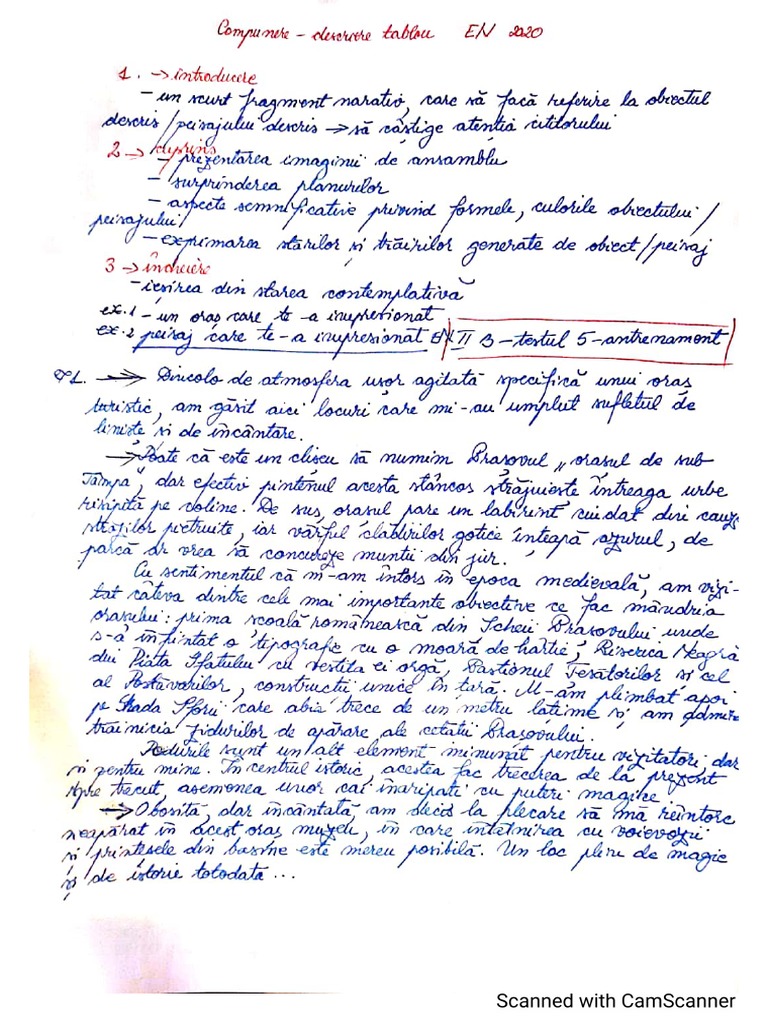 Compunere - descriere tablou EN 2020
1. → introducere
- un scurt fragment narativ, care să facă referire la obiectul
descris/peisajului descris → să câștige atenția cititorului
2 → cuprins
- prezentarea imaginii de ansamblu
- surprinderea planurilor
- aspecte semnificative privind formele, culorile obiectului/
peisajului
- exprimarea stărilor și trăirilor generate de obiect/peisaj
3 → încheiere
- ieșirea din starea contemplativă
ex.1 - un oraș care te-a impresionat
ex.2 peisaj care te-a impresionat EN II B - testul 5 - antrenament
→ Dincolo de atmosfera ușor agitată specifică unui oraș
turistic, am găsit aici locuri care mi-au umplut sufletul de
liniște și de încântare.
→ Poate că este un clișeu să numim Brașovul „orașul de sub
Tâmpa", dar efectiv pintenul acesta stâncos străjuiește întreaga urbe
risipită pe coline. De sus, orașul pare un labirint ciudat din cauza
străzilor pietruite, iar vârful clădirilor gotice înțeapă azurul, de
parcă ar vrea să concureze munții din jur.
Cu sentimentul că m-am întors în epoca medievală, am vizi-
tat câteva dintre cele mai importante obiective ce fac mândria
orașului: prima școală românească din Scheii Brașovului unde
s-a înființat o tipografie cu o moară de hârtie, Biserica Neagră
din Piața Sfatului cu vestita ei orgă, Bastionul Țesătorilor și cel
al Postăvarilor, construcții unice în țară. M-am plimbat apoi
pe Strada Sforii care abia trece de un metru lățime și am admirat
trăinicia zidurilor de apărare ale cetății Brașovului.
Podurile sunt un alt element minunat pentru vizitatori, dar
și pentru mine. În centrul istoric, acestea fac trecerea de la prezent
spre trecut, asemenea unor cai înaripați cu puteri magice.
→ Obosită, dar încântată, am decis la plecare să mă reîntorc
neapărat în acest oraș muzeu, în care întâlnirea cu voievozii
și prințesele din basme este mereu posibilă. Un loc plin de magie
și de istorie totodată...
Scanned with CamScanner